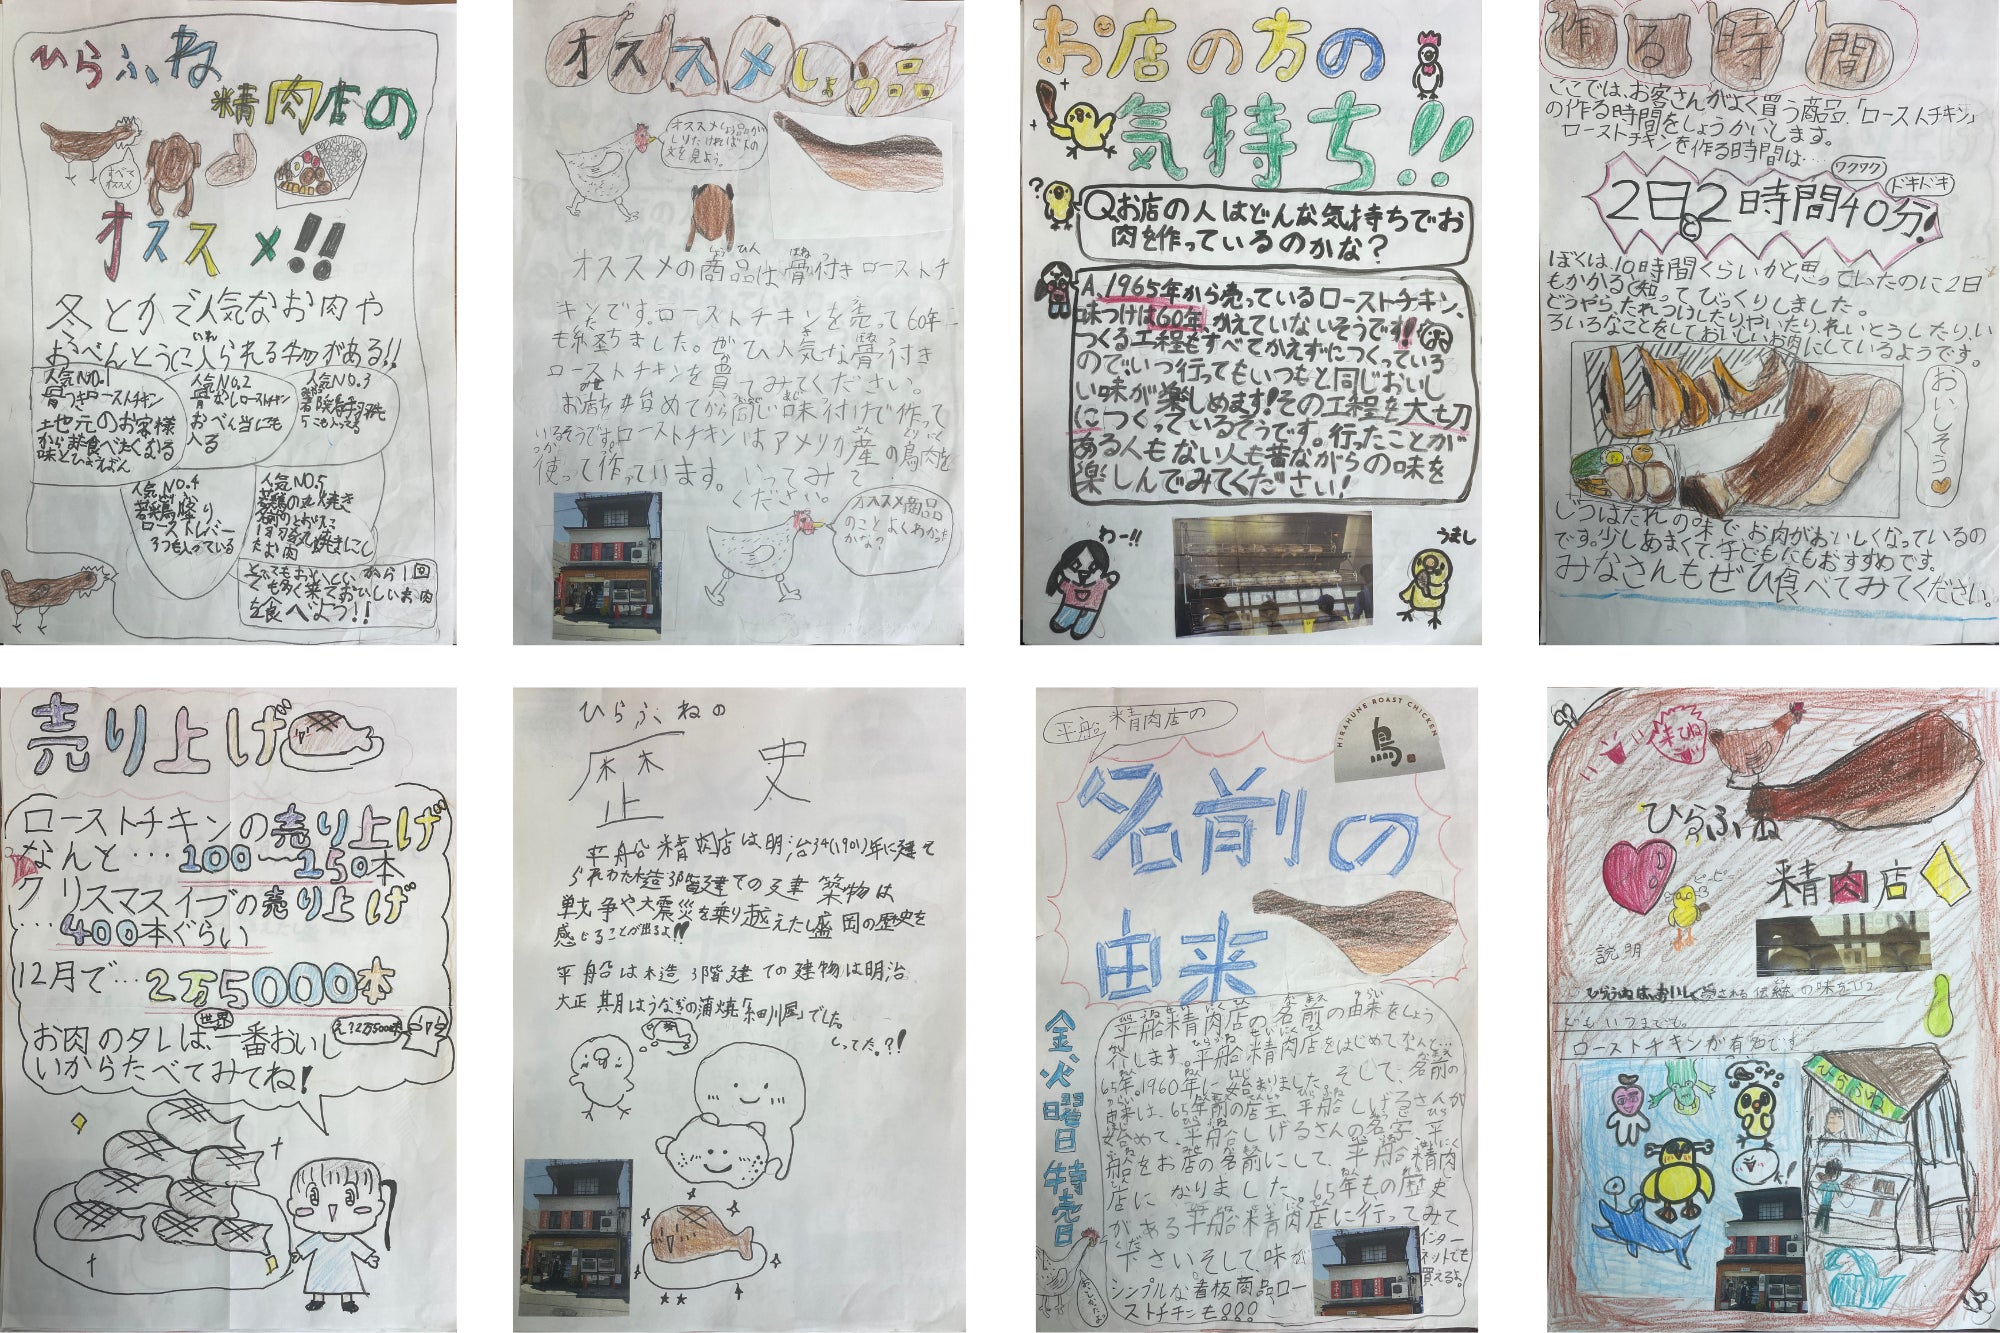 ひらふね
精肉店の
すべて
オススメ
オススメ!!
冬とかで人気なお肉や
おべんとうに入られる物がある!!
人気NO.1
骨つきローストチキン
地元のお客様
から非食べたくなる
味とひょうばん
人気NO.2
骨なしローストチキン
おべん当にも
入る
人気NO.3
人気NO.4
若鶏
ローストレバー
3つも入っている
人気NO.5
若鶏の丸焼き
たお肉
とてもおいしいから1回
でも多く来ておいしいお肉
を食べよう!!
オススメしょう品
オススメしょう品が
しりたければ下の
文を見よう。
オススメの商品は骨付きローストチ
キンです。ローストチキンを売って60年に
も経ちました。ぜひ人気な骨付き
ローストチキンを買てみてください。
お店が始めてから同じ味付けで作って
いるそうです。ローストチキンはアメリカ産の鳥肉を
使って作っています。いってみて
ください。
オススメ商品
のことよくわかった
かな?
お店の方の
気持ち!!
?
Q.お店の人はどんな気持ちでお
肉を作っているのかな?
A.1965年から売っているローストチキン、
味つけは60年、かえていないそうです!
つくる工程もすべてかえずにつくっている
のでいつ行ってもいつもと同じおいし
い味が楽しめます!その工程を大切
につくっているそうです。行ったことが
ある人もない人も昔ながらの味を
楽しんでみてください!
わー!!
うまし
作る時間
ここでは、お客さんがよく買う商品、「ローストチキン」
の作る時間をしょうかいします。
ローストチキンを作る時間は…
ワクワク
ドキドキ
2日と2時間40分!
ぼくは、10時間くらいかと思っていたのに2日
もかかると知って、びっくりしました。
どうやら、たれつけしたりやいたり、れいとうしたり、い
ろいろなことをしておいしいお肉にしているようです。
おいしそう
じつはたれの味で、お肉がおいしくなっているの
です。少しあまくて、子どもにもおすすめです。
みなさんもぜひ食べてみてください。
売り上げ
ローストチキンの売り上げ
なんと…100〜150本
クリスマスイブの売り上げ
…400本ぐらい
12月で…2万5000本
お肉のタレは、世界一番おいし
いからたべてみてね!
え?2万5000本
ひらふねの
歴史
平船精肉店は明治34(1901)年に建て
られた木造3階建ての建築物は
戦争や大震災を乗り越えたし盛岡の歴史を
感じることが出るよ!!
平船は木造3階建ての建物は明治
大正期はうなぎの蒲焼「細川屋」でした。
しってた。?!
平船精肉店の
HIRAHUNE ROAST CHICKEN
鳥
名前の
由来
金、火曜日特売日
平船精肉店の名前の由来をしょう
介します。平船精肉店をはじめてなんと…
65年。1960年に始まりました。そして、名前の
由来は、65年前の店主、平船しげるさんが
始めて、平船しげるさんの名字、平
船をお店の名前にして、平船精肉
店になりました。65年もの歴史
がある平船精肉店に行ってみて
下さいそして、味が
シンプルな看板商品ロー
ストチキンも888
インター
ネットでも
買えるよ。
ひらふね
精肉店
ピーピー
説明
ひらふねは、おいしく愛される伝統の味を
でもいつまでも。
ローストチキンが有名です
ひらふね